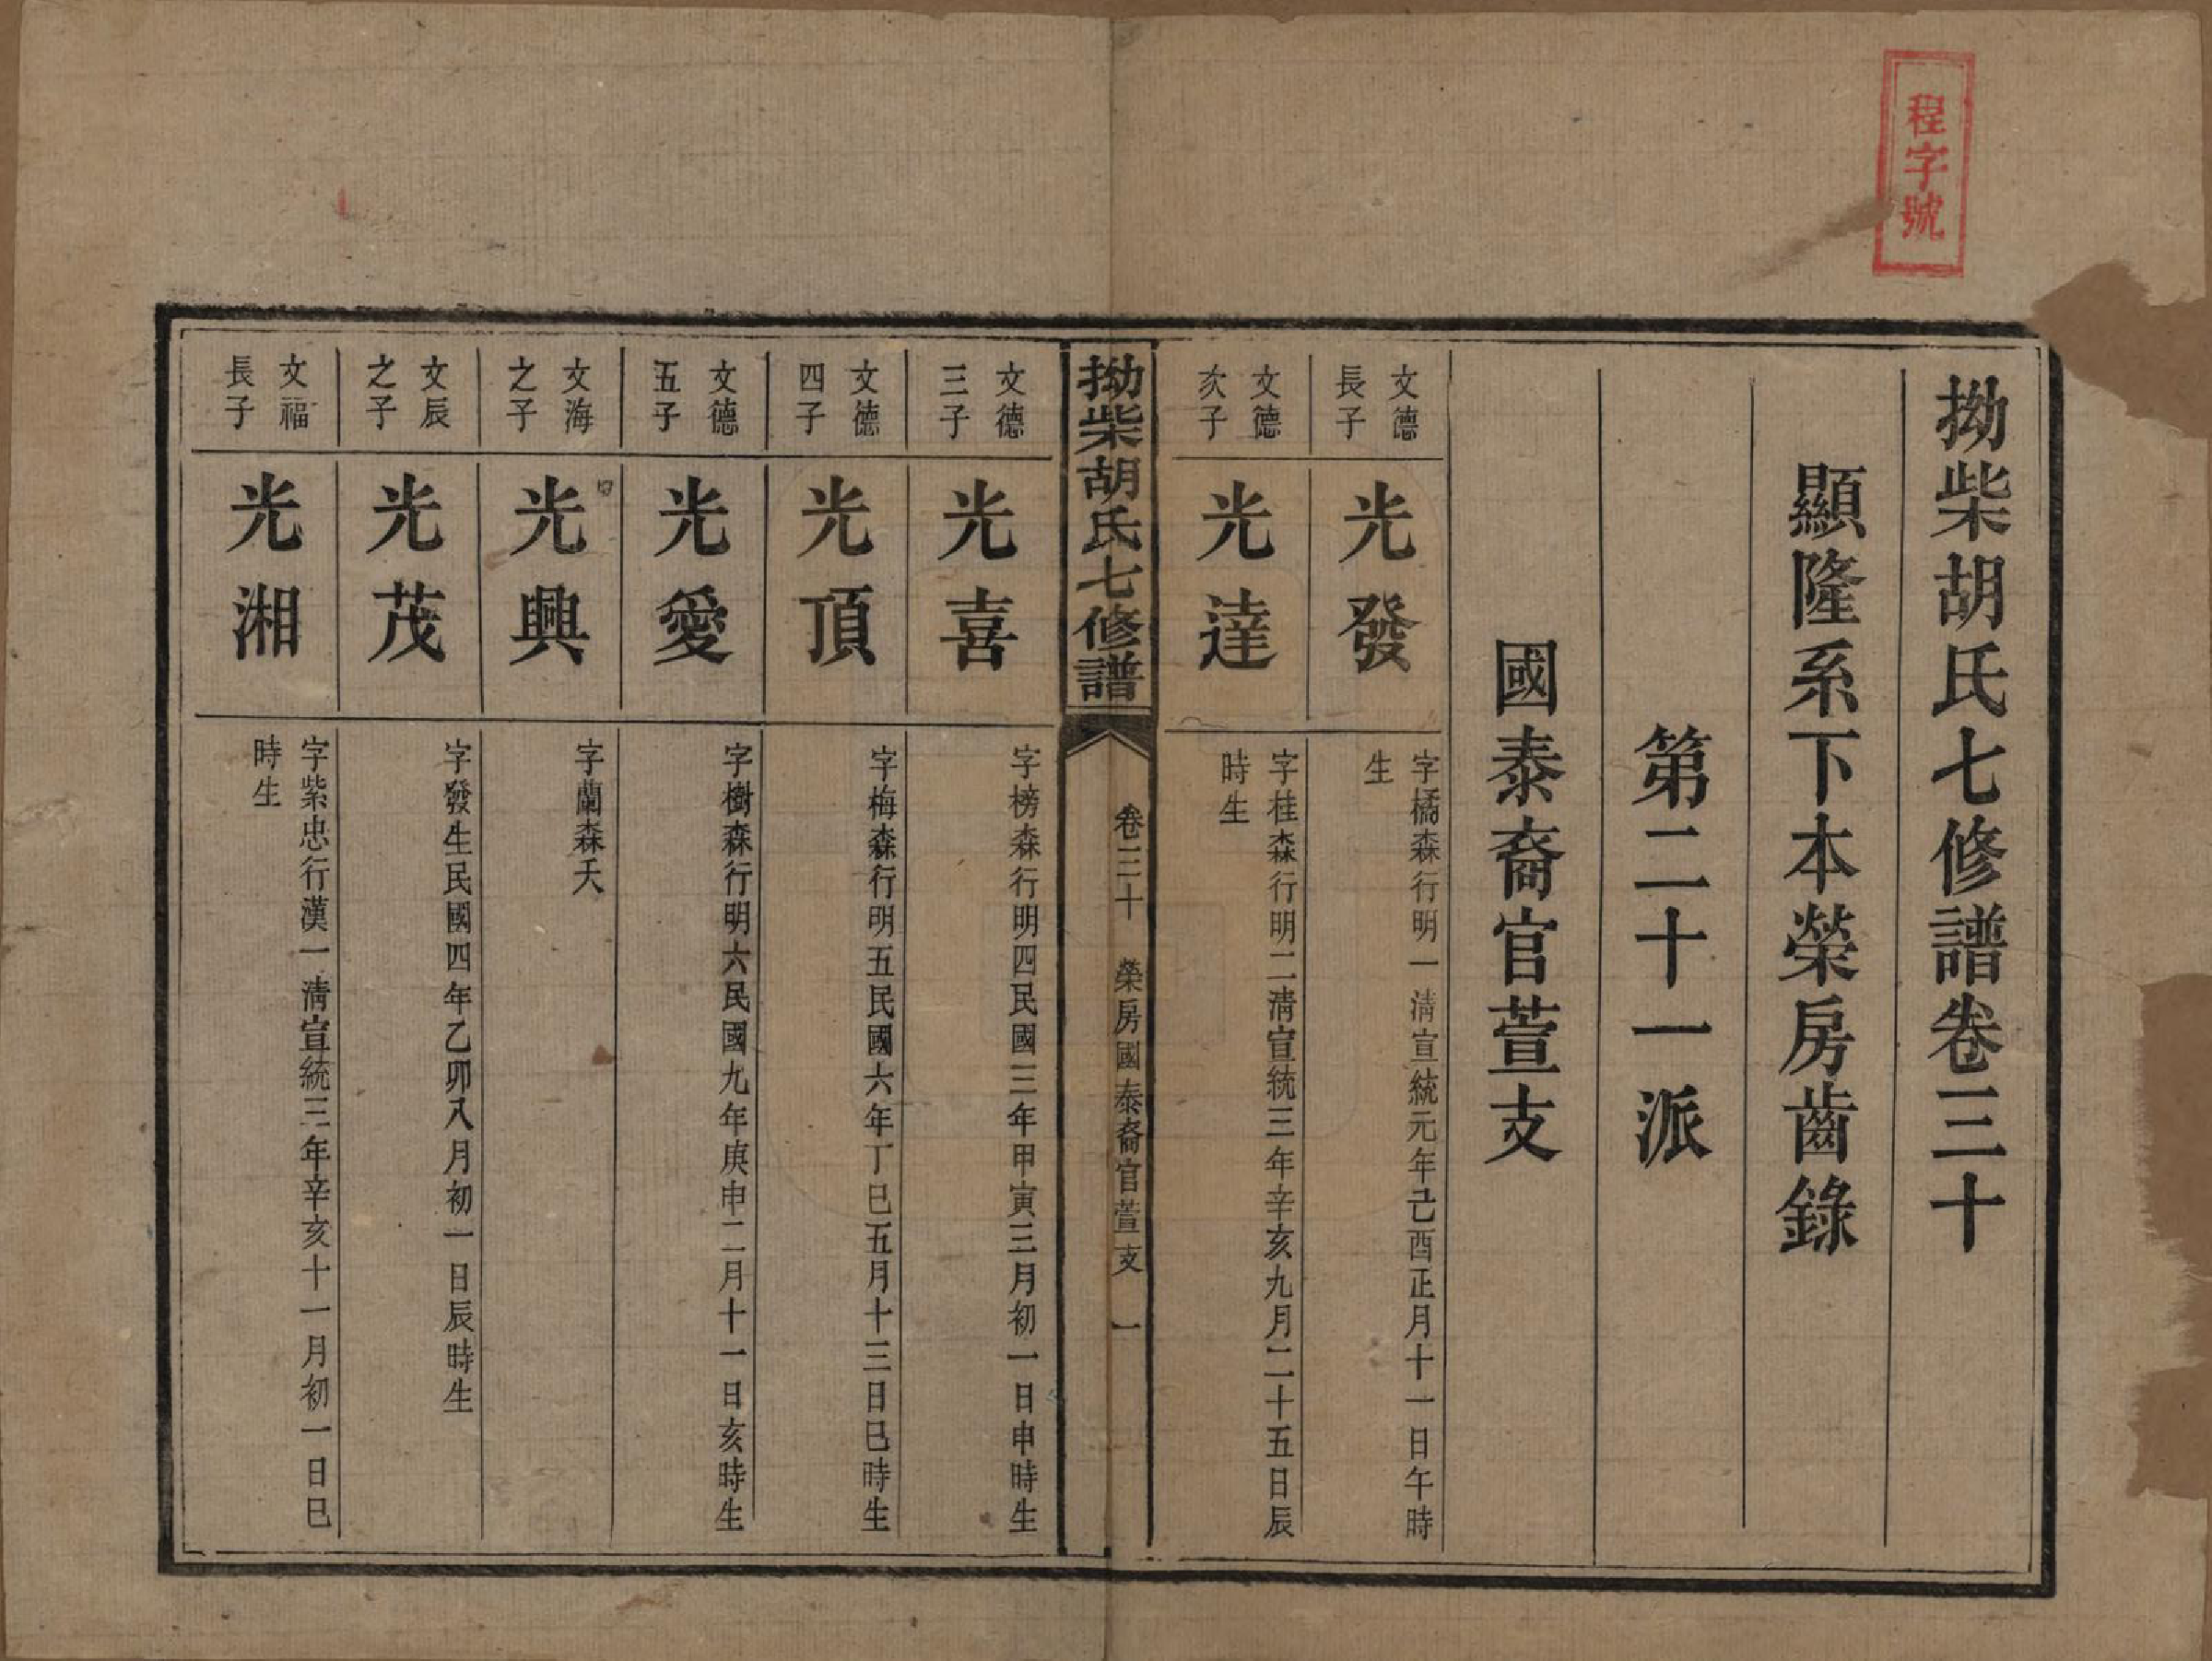 程字號
拗柴胡氏七修譜卷三十
顯隆系下本榮房齒錄
第二十一派
國泰裔官萱支
文德
長子
光發
字橘森行明一清宣統元年己酉正月十一日午時
生
文德
次子
光達
字桂森行明二清宣統三年辛亥九月二十五日辰
時生
拗柴胡氏七修譜
卷三十
榮房國泰裔官萱支
一
文德
三子
光喜
字榜森行明四民國三年甲寅三月初一日申時生
文德
四子
光頂
字梅森行明五民國六年丁巳五月十三日巳時生
文德
五子
光愛
字樹森行明六民國九年庚申二月十一日亥時生
文海
之子
光興
字蘭森夭
文辰
之子
光茂
字發生民國四年乙卯八月初一日辰時生
文福
長子
光湘
字紫忠行漢一清宣統三年辛亥十一月初一日巳
時生